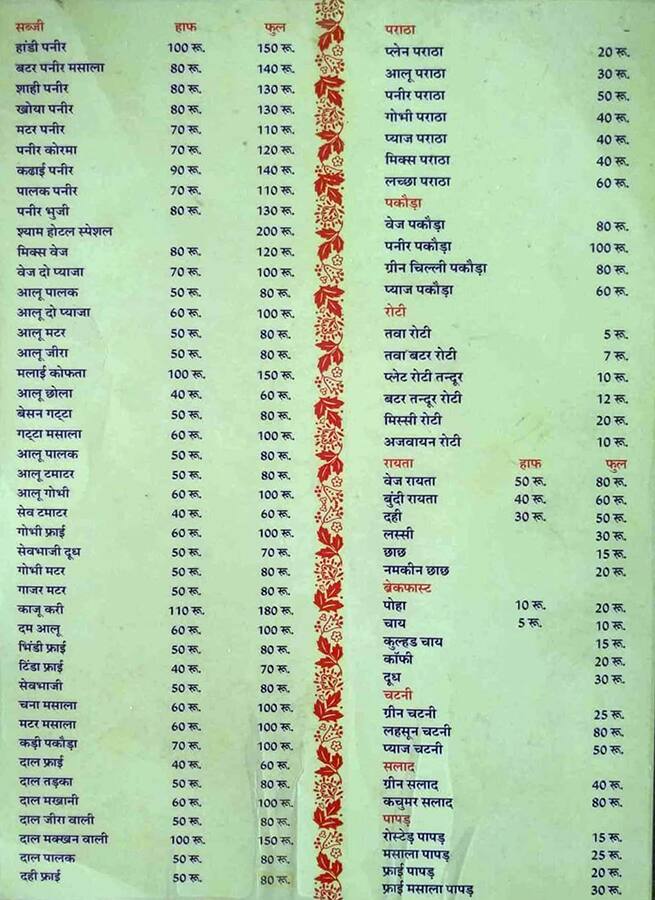 सब्जी हाफ फुल
हांडी पनीर 100 रू. 150 रू.
बटर पनीर मसाला 80 रू. 140 रू.
शाही पनीर 80 रू. 130 रू.
खोया पनीर 80 रू. 130 रू.
मटर पनीर 70 रू. 110 रू.
पनीर कोरमा 70 रू. 120 रू.
कढाई पनीर 90 रू. 140 रू.
पालक पनीर 70 रू. 110 रू.
पनीर भुजी 80 रू. 130 रू.
श्याम होटल स्पेशल 200 रू.
मिक्स वेज 80 रू. 120 रू.
वेज दो प्याजा 70 रू. 100 रू.
आलू पालक 50 रू. 80 रू.
आलू दो प्याजा 60 रू. 100 रू.
आलू मटर 50 रू. 80 रू.
आलू जीरा 50 रू. 80 रू.
मलाई कोफता 100 रू. 150 रू.
आलू छोला 40 रू. 60 रू.
बेसन गट्टा 50 रू. 80 रू.
गट्टा मसाला 60 रू. 100 रू.
आलू पालक 50 रू. 80 रू.
आलू टमाटर 50 रू. 80 रू.
आलू गोभी 60 रू. 100 रू.
सेव टमाटर 40 रू. 60 रू.
गोभी फ्राई 60 रू. 100 रू.
सेवभाजी दूध 50 रू. 70 रू.
गोभी मटर 50 रू. 80 रू.
गाजर मटर 50 रू. 80 रू.
काजू करी 110 रू. 180 रू.
दम आलू 60 रू. 100 रू.
भिंडी फ्राई 50 रू. 80 रू.
टिंडा फ्राई 40 रू. 70 रू.
सेवभाजी 50 रू. 80 रू.
चना मसाला 60 रू. 100 रू.
मटर मसाला 60 रू. 100 रू.
कड़ी पकौड़ा 70 रू. 100 रू.
दाल फ्राई 40 रू. 60 रू.
दाल तड़का 50 रू. 80 रू.
दाल मखानी 60 रू. 100 रू.
दाल जीरा वाली 50 रू. 80 रू.
दाल मक्खन वाली 100 रू. 150 रू.
दाल पालक 50 रू. 80 रू.
दही फ्राई 50 रू. 80 रू.
पराठा
प्लेन पराठा 20 रू.
आलू पराठा 30 रू.
पनीर पराठा 50 रू.
गोभी पराठा 40 रू.
प्याज पराठा 40 रू.
मिक्स पराठा 40 रू.
लच्छा पराठा 60 रू.
पकौड़ा
वेज पकौड़ा 80 रू.
पनीर पकौड़ा 100 रू.
ग्रीन चिल्ली पकौड़ा 80 रू.
प्याज पकौड़ा 60 रू.
रोटी
तवा रोटी 5 रू.
तवा बटर रोटी 7 रू.
प्लेट रोटी तन्दूर 10 रू.
बटर तन्दूर रोटी 12 रू.
मिस्सी रोटी 20 रू.
अजवायन रोटी 10 रू.
रायता हाफ फुल
वेज रायता 50 रू. 80 रू.
बुंदी रायता 40 रू. 60 रू.
दही 30 रू. 50 रू.
लस्सी 30 रू.
छाछ 15 रू.
नमकीन छाछ 20 रू.
ब्रेकफास्ट
पोहा 10 रू. 20 रू.
चाय 5 रू. 10 रू.
कुल्हड चाय 15 रू.
कॉफी 20 रू.
दूध 30 रू.
चटनी
ग्रीन चटनी 25 रू.
लहसून चटनी 80 रू.
प्याज चटनी 50 रू.
सलाद
ग्रीन सलाद 40 रू.
कचुमर सलाद 80 रू.
पापड़
रोस्टेड़ पापड़ 15 रू.
मसाला पापड़ 25 रू.
फ्राई पापड़ 20 रू.
फ्राई मसाला पापड़ 30 रू.